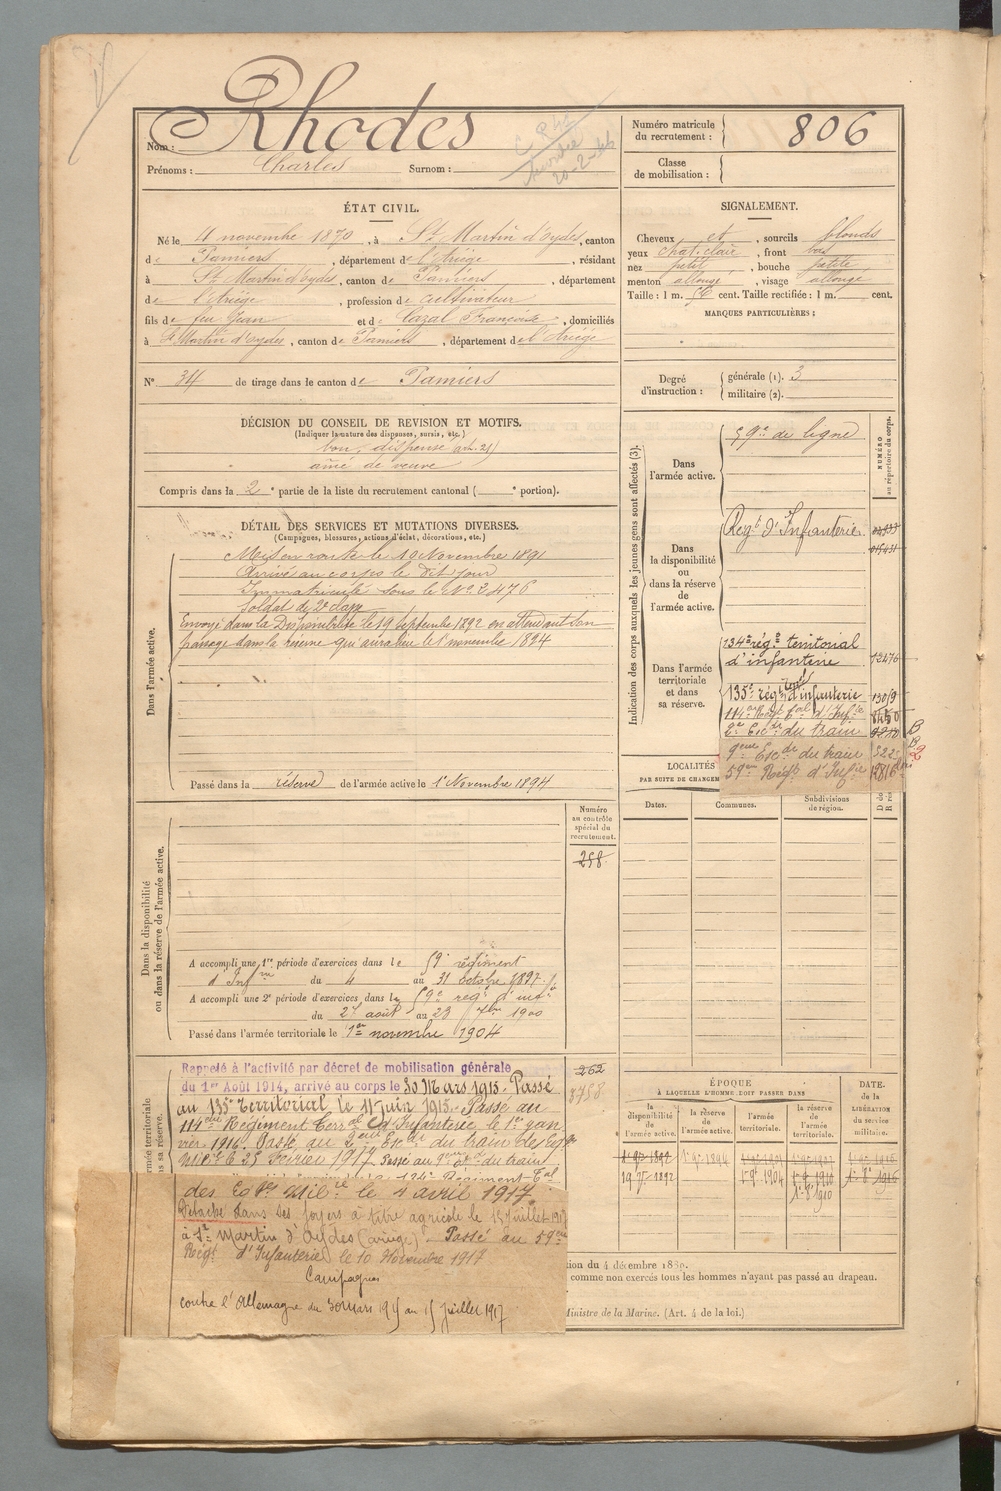 Nom : Rhodes
Prénoms : Charles Surnom :
Numéro matricule du recrutement : 806
Classe de mobilisation :
ÉTAT CIVIL.
Né le 4 novembre 1870, à St Martin d'oydes, canton
de Pamiers, département de l'Ariège, résidant
à St Martin d'oydes, canton de Pamiers, département
de l'Ariège, profession de cultivateur
fils de feu Jean et de Cazal Françoise, domiciliés
à St Martin d'oydes, canton de Pamiers, département de l'Ariège
N° 34 de tirage dans le canton de Pamiers
SIGNALEMENT.
Cheveux et, sourcils blonds
yeux chat. clair, front bas
nez petit, bouche petite
menton allongé, visage allongé
Taille : 1 m. 56 cent. Taille rectifiée : 1 m. cent.
MARQUES PARTICULIÈRES :
Degré d'instruction : générale (1). 3
militaire (2).
DÉCISION DU CONSEIL DE REVISION ET MOTIFS.
(Indiquer la nature des dispenses, sursis, etc.)
bon, dispensé art. 21
aîné de veuve
Compris dans la 2e partie de la liste du recrutement cantonal ( e portion).
DÉTAIL DES SERVICES ET MUTATIONS DIVERSES.
(Campagnes, blessures, actions d'éclat, décorations, etc.)
Dans l'armée active.
Mis en route le 10 Novembre 1891
Arrivé au corps le dit jour
Immatriculé sous le No 2476
Soldat de 2e classe
Envoyé dans la Disponibilité le 19 Septembre 1892 en attendant son
passage dans la réserve qui aura lieu le 1er novembre 1894
Passé dans la réserve de l'armée active le 1er Novembre 1894
Indication des corps auxquels les jeunes gens sont affectés (3).
NUMÉRO au répertoire du corps.
Dans l'armée active.
59e de ligne
Dans la disponibilité ou dans la réserve de l'armée active.
Regt d'Infanterie
Dans l'armée territoriale et dans sa réserve.
134e régt territorial
d'infanterie 12476
135e régt terral d'infanterie 13019
114e Regt Tal d'Infie 8450
2e Escon du train
9eme Escon du train
59eme Regt d'Infie
LOCALITÉS
PAR SUITE DE CHANGEM
Dates. Communes. Subdivisions de région.
Dans la disponibilité ou dans la réserve de l'armée active.
Numéro au contrôle spécial du recrutement.
258
A accompli une 1re période d'exercices dans le 59e régiment
d'Infrie du 4 au 31 octobre 1897
A accompli une 2e période d'exercices dans le 59e regt d'infie
du 27 août au 23 7bre 1900
Passé dans l'armée territoriale le 1er novembre 1904
262
3758
Rappelé à l'activité par décret de mobilisation générale
du 1er Août 1914, arrivé au corps le 30 Mars 1915. Passé
au 135e Territorial le 11 Juin 1915. Passé au
114eme Régiment Terral d'Infanterie le 1er jan
vier 1916. Passé au 2eme Escon du train des Eqges
Mires le 25 Février 1917. Passé au 9eme Eon du train
des Eqges Milres le 4 avril 1917.
Détaché dans ses foyers à titre agricole le 15 Juillet 1917
à St Martin d'Oydes (ariège). Passé au 59eme
Regt d'Infanterie le 10 Novembre 1917
Campagnes
contre l'Allemagne du 30 Mars 1915 au 15 Juillet 1917
ÉPOQUE
À LAQUELLE L'HOMME DOIT PASSER DANS
la disponibilité de l'armée active. la réserve de l'armée active. l'armée territoriale. la réserve de l'armée territoriale.
DATE. de la LIBÉRATION du service militaire.
19 7bre 1892 1er 9bre 1894 1er 9bre 1904 1er 9bre 1910
tion du 4 décembre 1889.
comme non exercés tous les hommes n'ayant pas passé au drapeau.
Ministre de la Marine. (Art. 4 de la loi.)